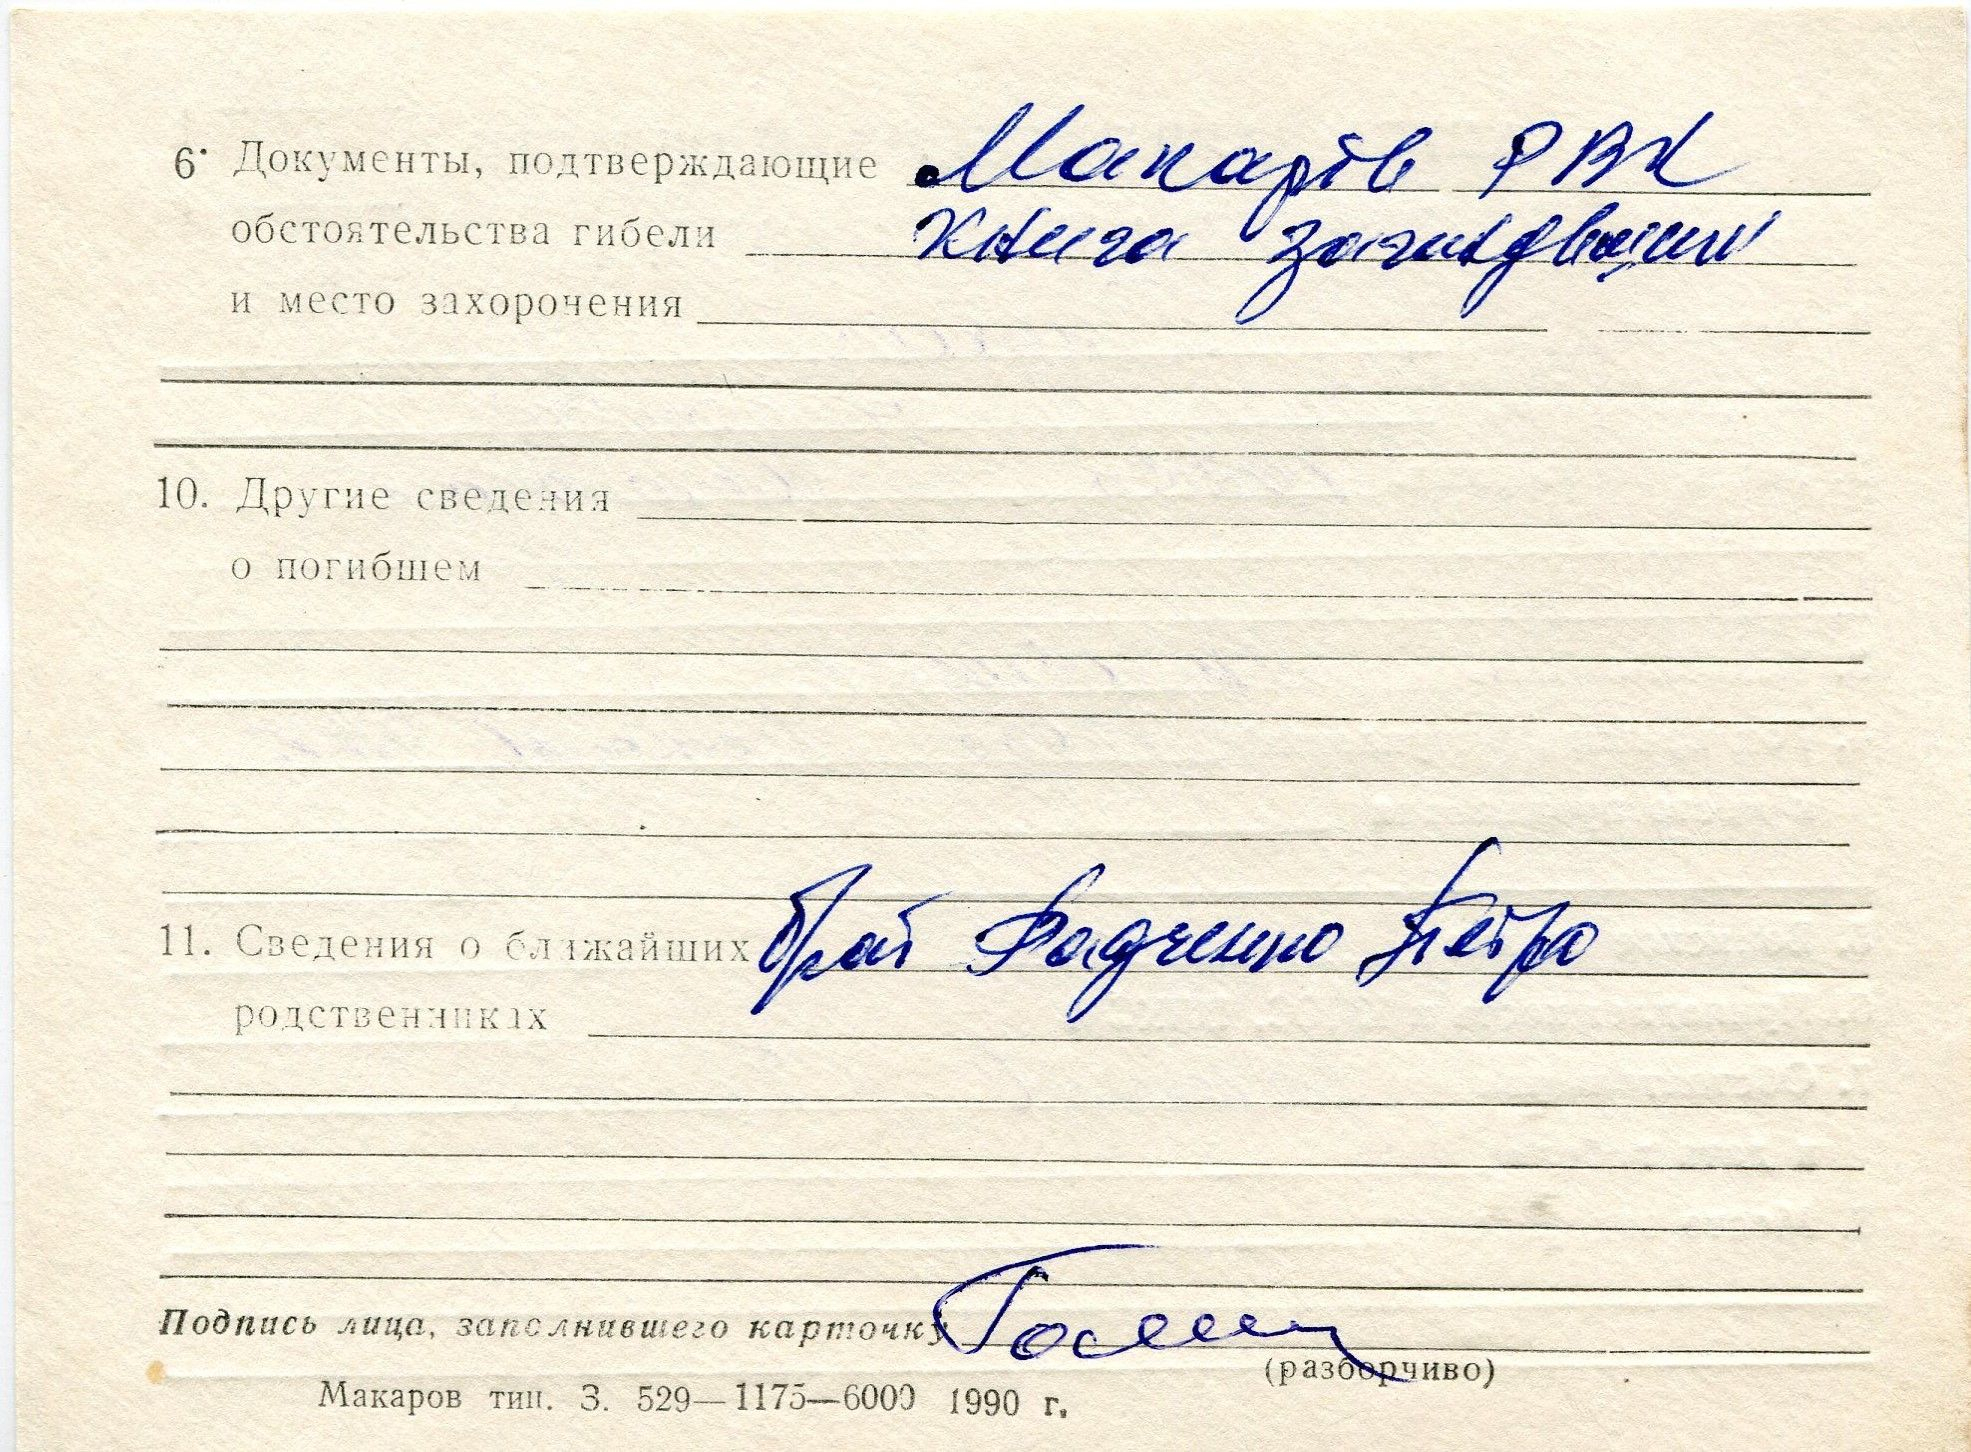 6. Документы, подтверждающие Макарів РВК
обстоятельства гибели Книга
и место захорочения
10. Другие сведения
о погибшем
11. Сведения о ближайших брат Радченко Петро
родственниках
Подпись лица, заполнившего карточку
(разборчиво)
Макаров тип. З. 529—1175—6000 1990 г.